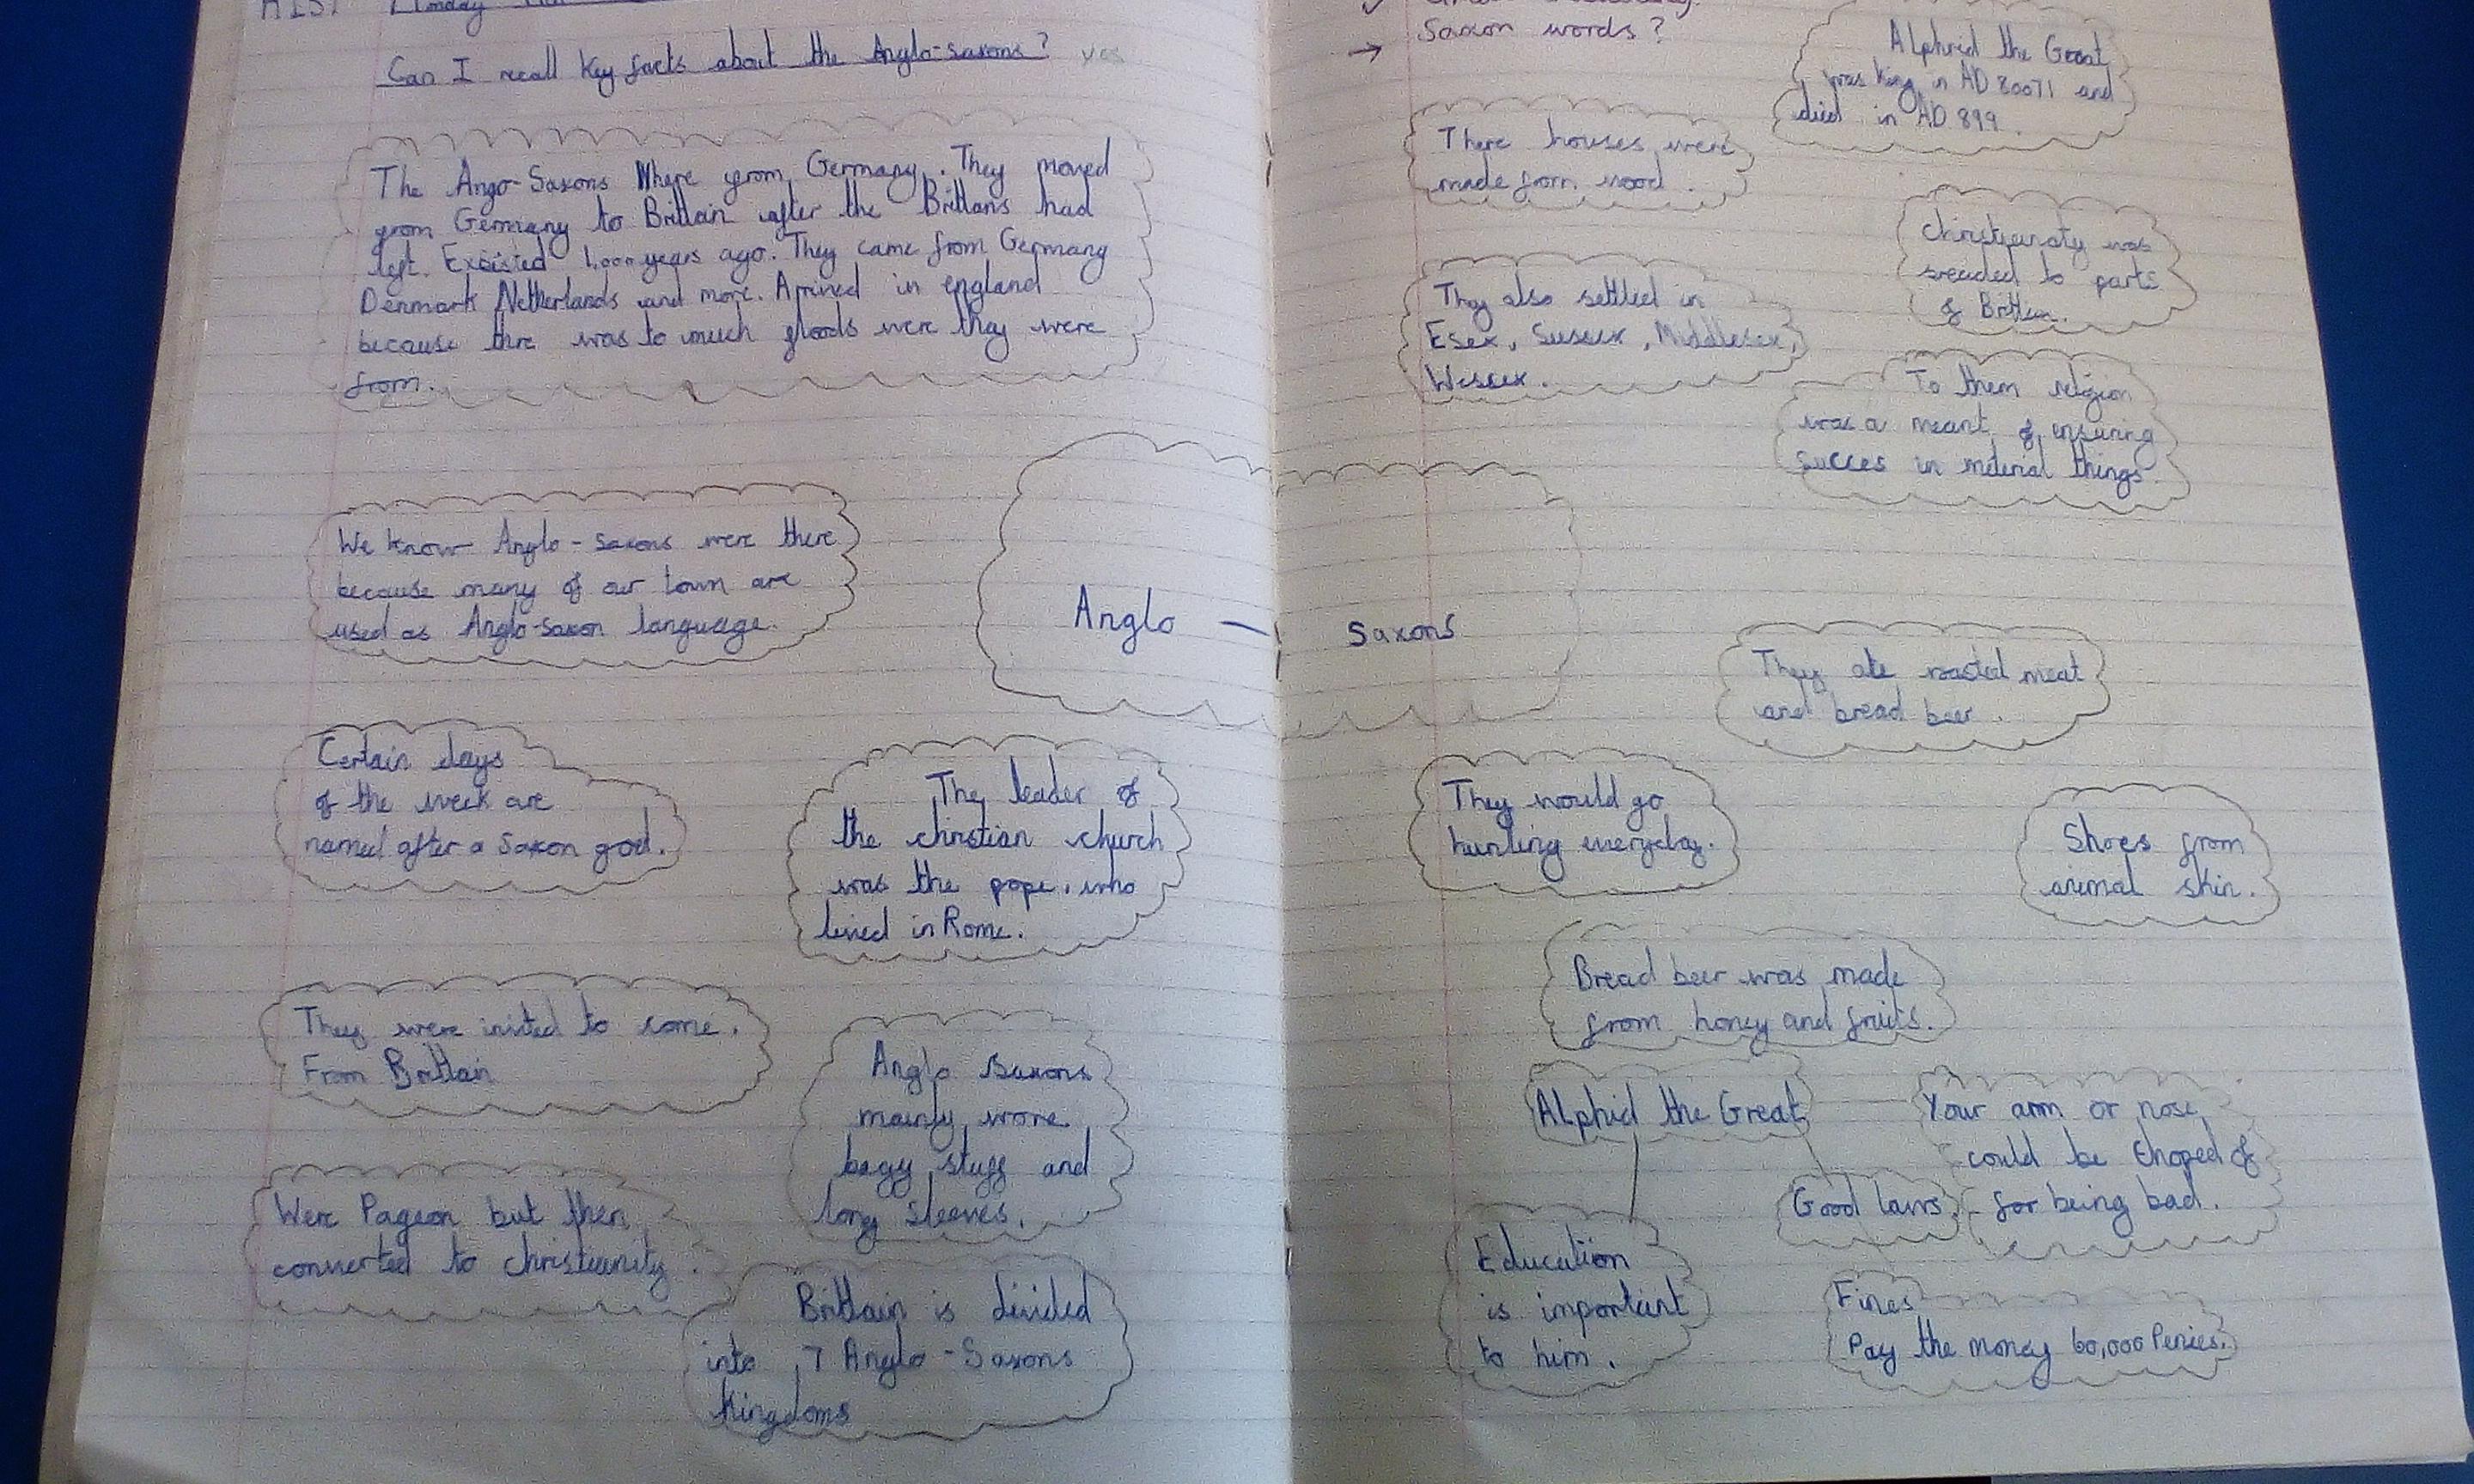 HIST Monday
Can I recall key facts about the Anglo-saxons? yes
The Ango-Saxons Where from Germany. They moved
from Germany to Brittain after the Brittans had
left. Excisted 1,000 years ago. They came from Germany
Denmark Netherlands and more. Arrived in england
because thre was to much floods were they were
from.
We know Anglo-saxons were there
because many of our town are
used as Anglo-saxon language.
Certain days
of the week are
named after a Saxon god.
The leader of
the christian church
was the pope, who
lived in Rome.
They were invited to come.
From Brittain
Anglo Saxons
mainly wore
bagy stuff and
long sleeves.
Were Pageon but then
converted to christianity.
Brittain is divided
into 7 Anglo-Saxons
Kingdoms
Anglo - saxons
Saxon words?
Alphrid the Great
was king in AD 80071 and
died in AD 899.
There houses were
made from wood.
Christianaty was
sreaded to parts
of Brittan.
They also settled in
Esex, Sussex, Middlesex,
Wessex.
To them religion
was a meant of ensuring
succes in material things.
They ate roasted meat
and bread beer.
They would go
hunting everyday.
Shoes from
animal skin.
Bread beer was made
from honey and fruits.
ALphid the Great
Your arm or nose
could be choped of
for being bad.
Good laws.
Education
is important
to him.
Fines
Pay the money 60,000 Penies.